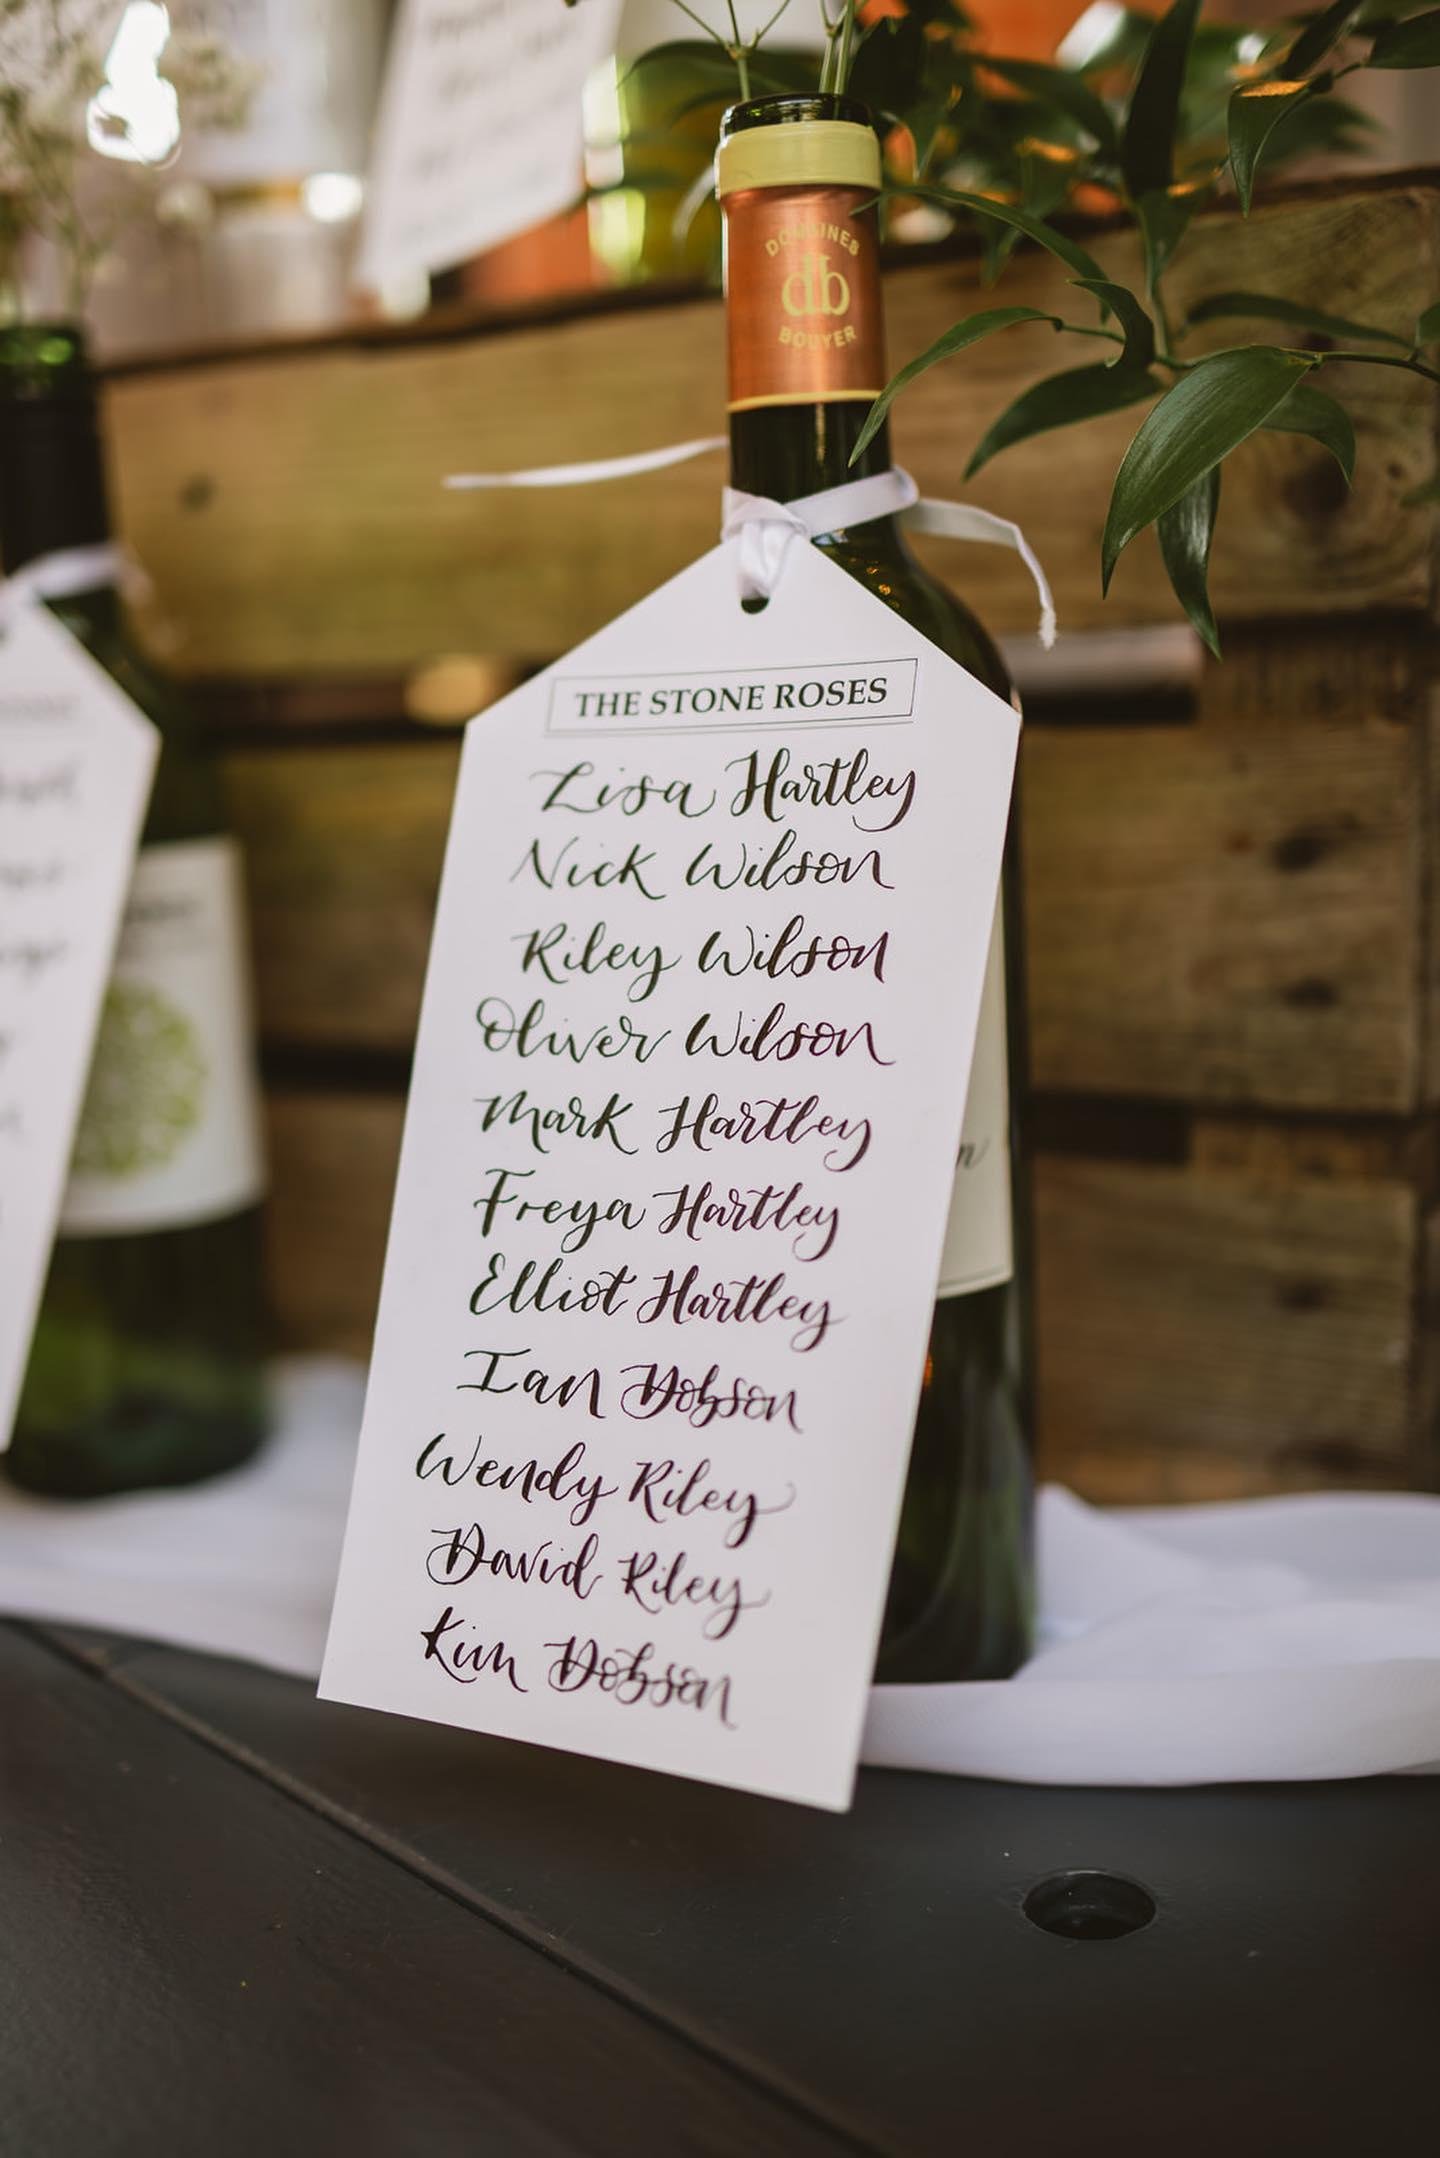 DOMAINES
db
BOUYER
THE STONE ROSES
Lisa Hartley
Nick Wilson
Riley Wilson
Oliver Wilson
Mark Hartley
Freya Hartley
Elliot Hartley
Ian Dobson
Wendy Riley
David Riley
Kim Dobson